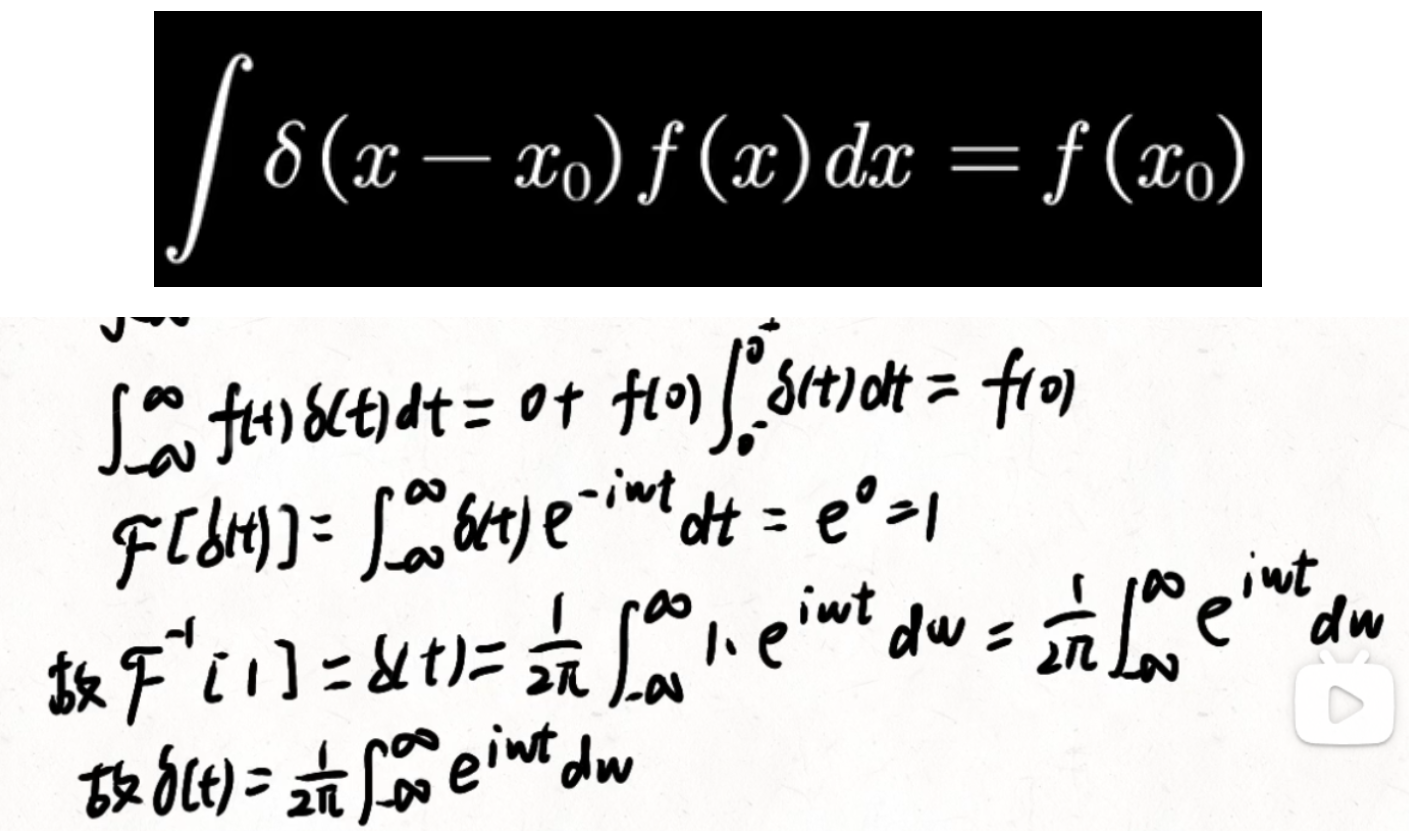 ∫ δ(x − x₀) f(x) dx = f(x₀)
∫_{-∞}^{∞} f(t) δ(t) dt = 0 + f(0) ∫_{0⁻}^{0⁺} δ(t) dt = f(0)
F[δ(t)] = ∫_{-∞}^{∞} δ(t) e^{-iwt} dt = e⁰ = 1
故 F⁻¹[1] = δ(t) = 1/2π ∫_{-∞}^{∞} 1·e^{iwt} dw = 1/2π ∫_{-∞}^{∞} e^{iwt} dw
故 δ(t) = 1/2π ∫_{-∞}^{∞} e^{iwt} dw